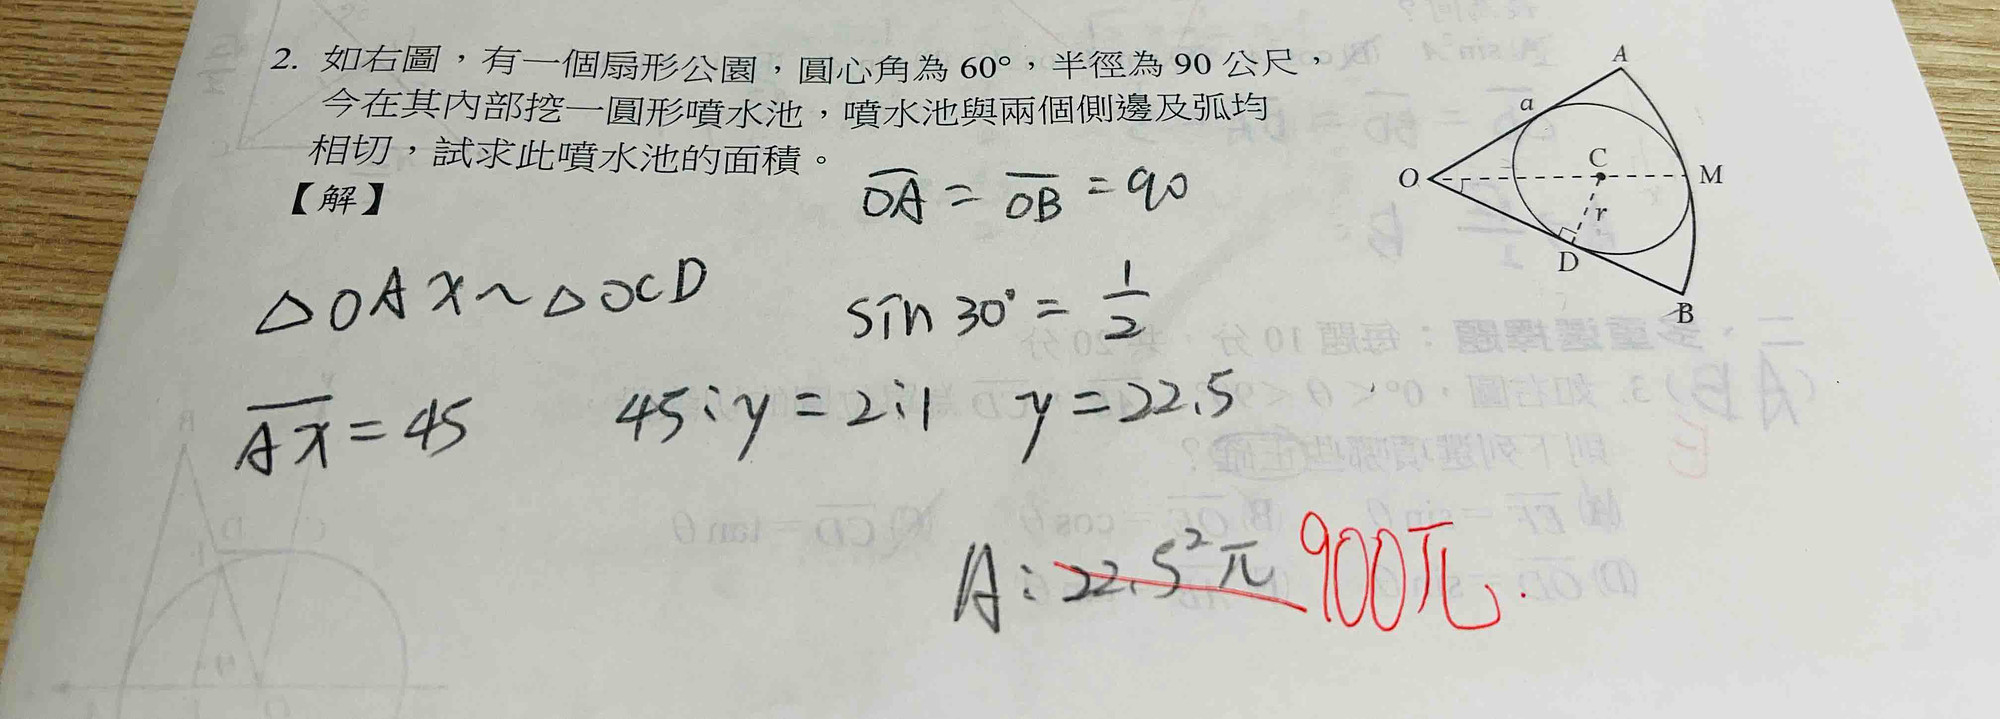 2. 如右圖，有一個扇形公園，圓心角為 60°，半徑為 90 公尺，
今在其內部挖一圓形噴水池，噴水池與兩個側邊及弧均
相切，試求此噴水池的面積。
【解】
OA = OB = 90
△OAX ~ △OCD
sin 30° = 1/2
AX = 45
45 : y = 2 : 1
y = 22.5
A : 22.5²π
900π.
A
a
O
C
M
r
D
B